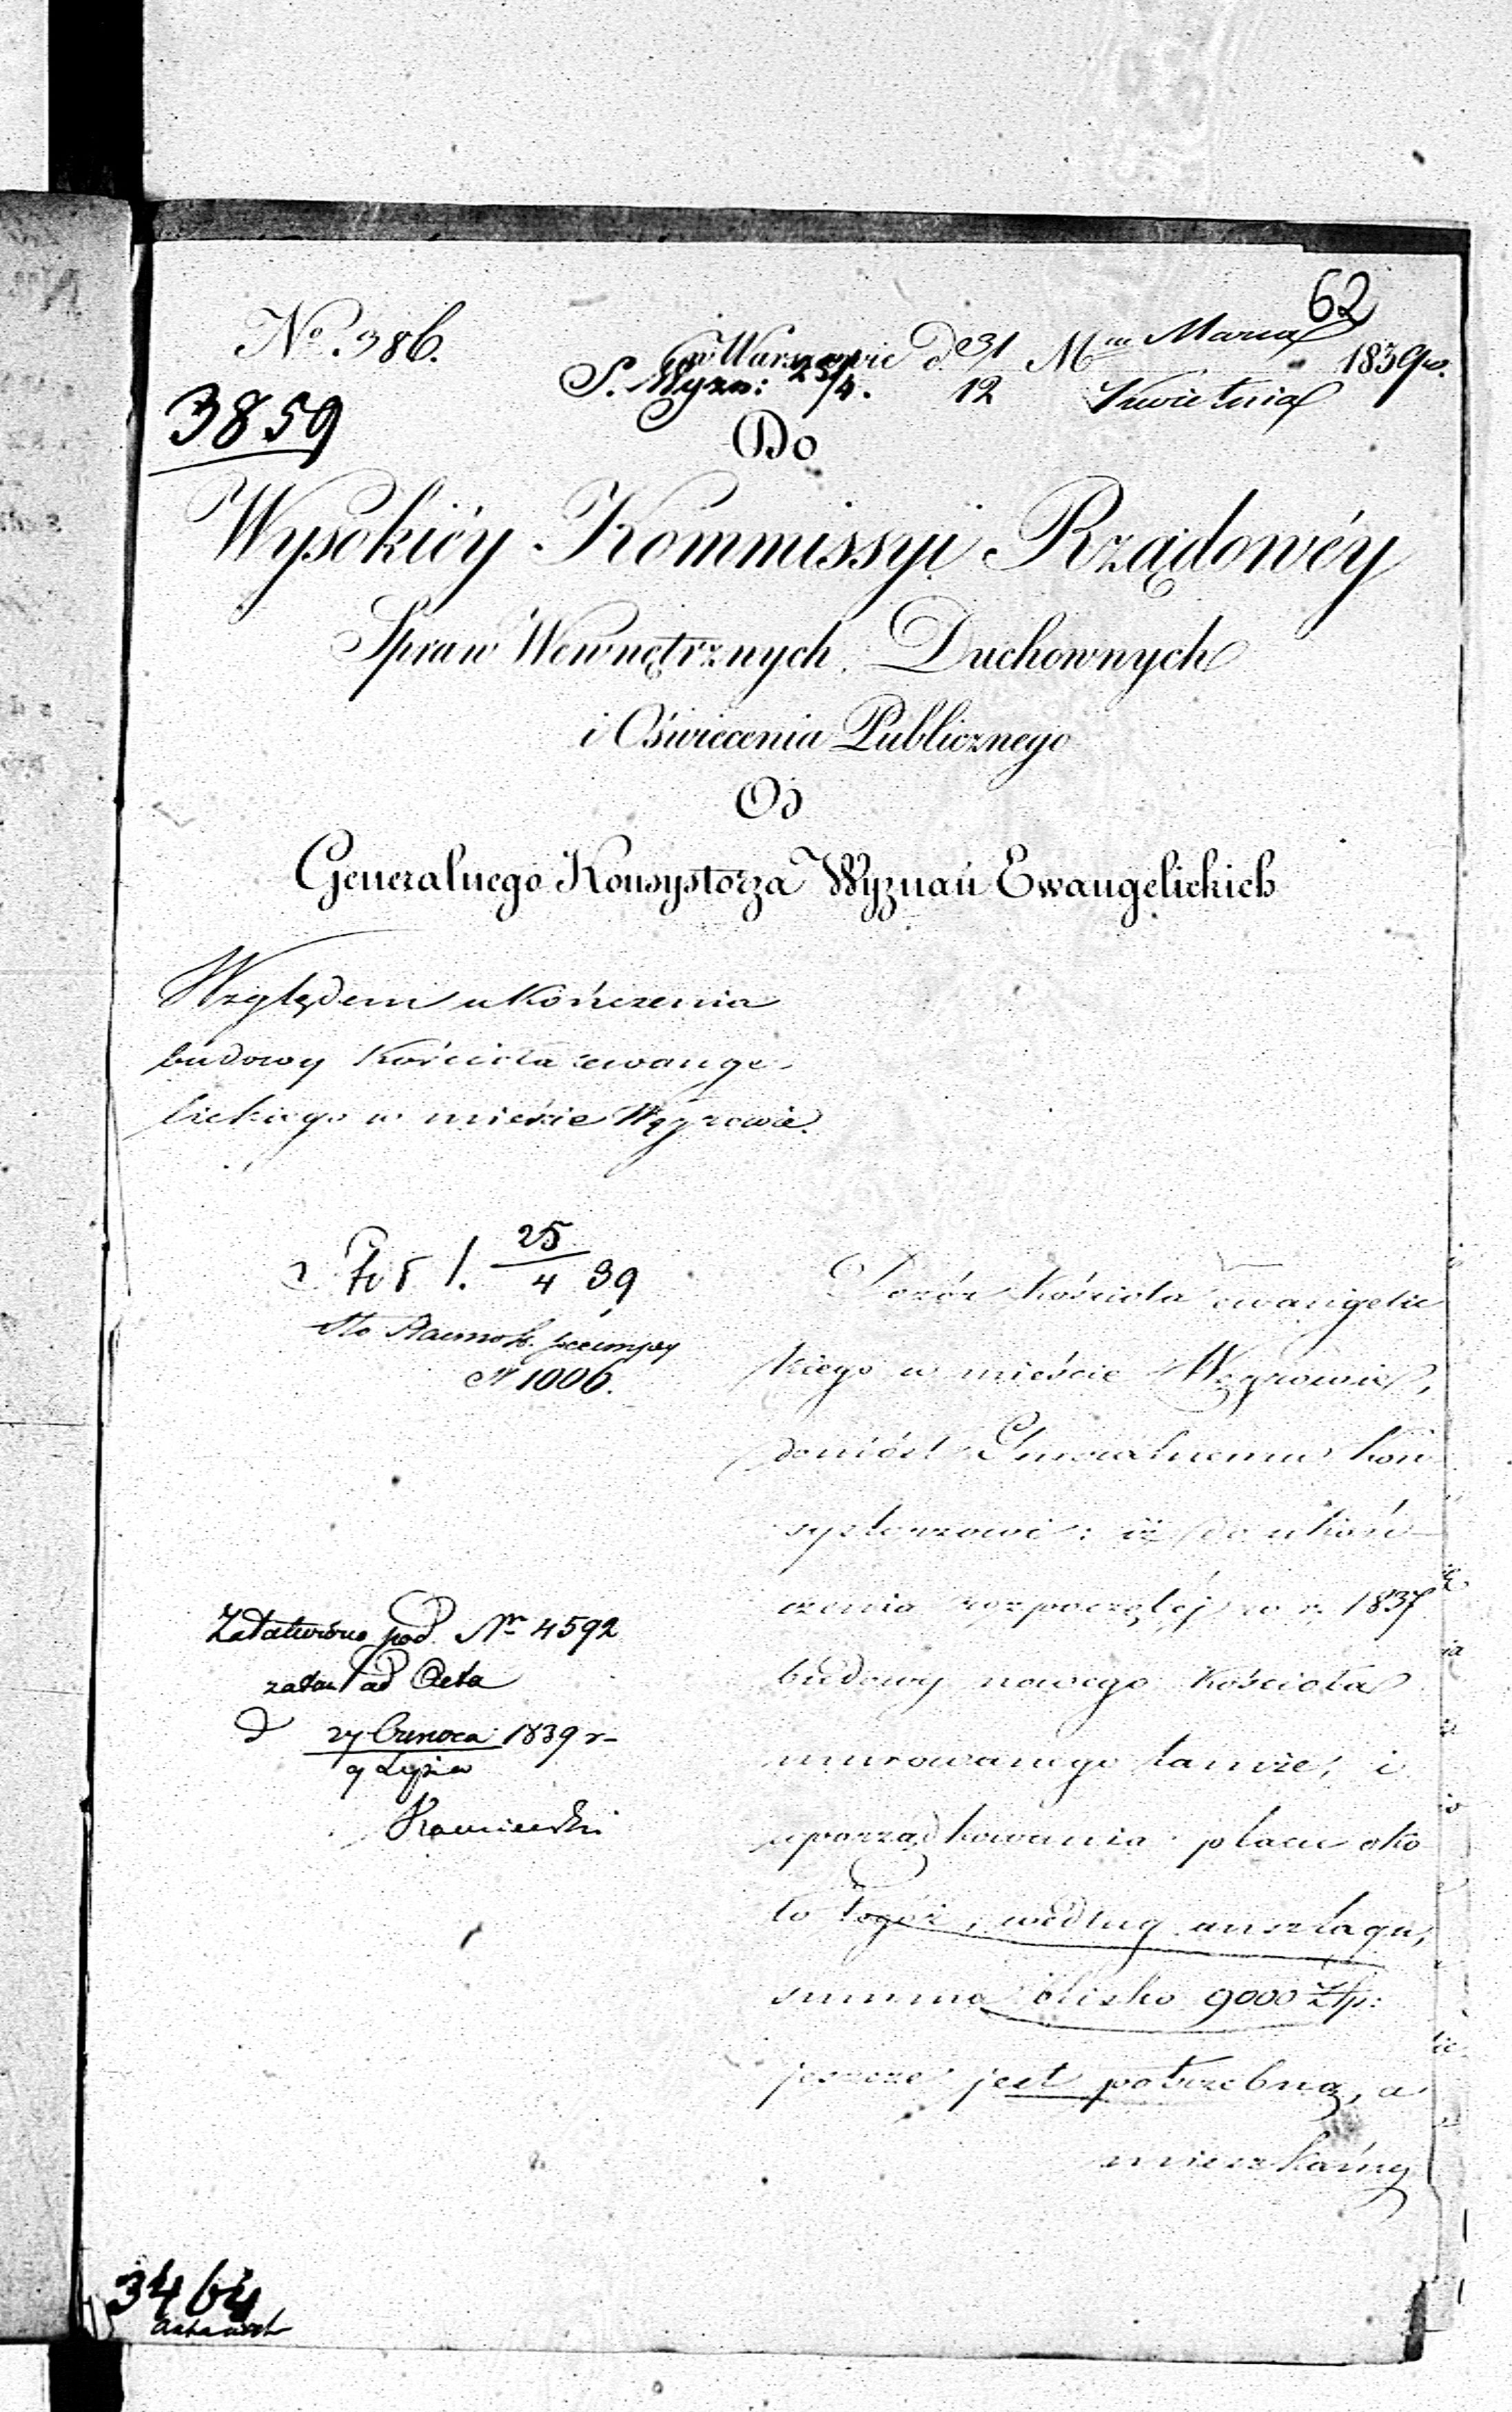 62
No. 386.
w Warszawie d. 31 Mca Marca 1839 r.
S. Wyzn: 25/4. 12 Kwietnia
3859
Do
Wysokiéy Kommissyi Rządowéy
Spraw Wewnętrznych Duchownych
i Oświecenia Publicznego
Od
Generalnego Konsystorza Wyznań Ewangelickich
Względem ukończenia
budowy Kościoła ewange-
lickiego w mieście Węgrowie.
25
4 39
N 1006.
Dozór Kościoła ewangelic
kiego w mieście Węgrowie,
doniósł Generalnemu Kon
systorzowi: iż do ukoń-
czenia rozpoczętéj w r. 1837
budowy nowego Kościoła
murowanego tamże, i
uporządkowania placu oko
ło tegoż, według anszlagu,
summa blisko 9000 Złp:
jeszcze jest potrzebną, a
mieszkańcy
Załatwiono pod Nr 4592
zatem ad Acta
d 27 Czerwca 1839 r-
9 Lipca
3464